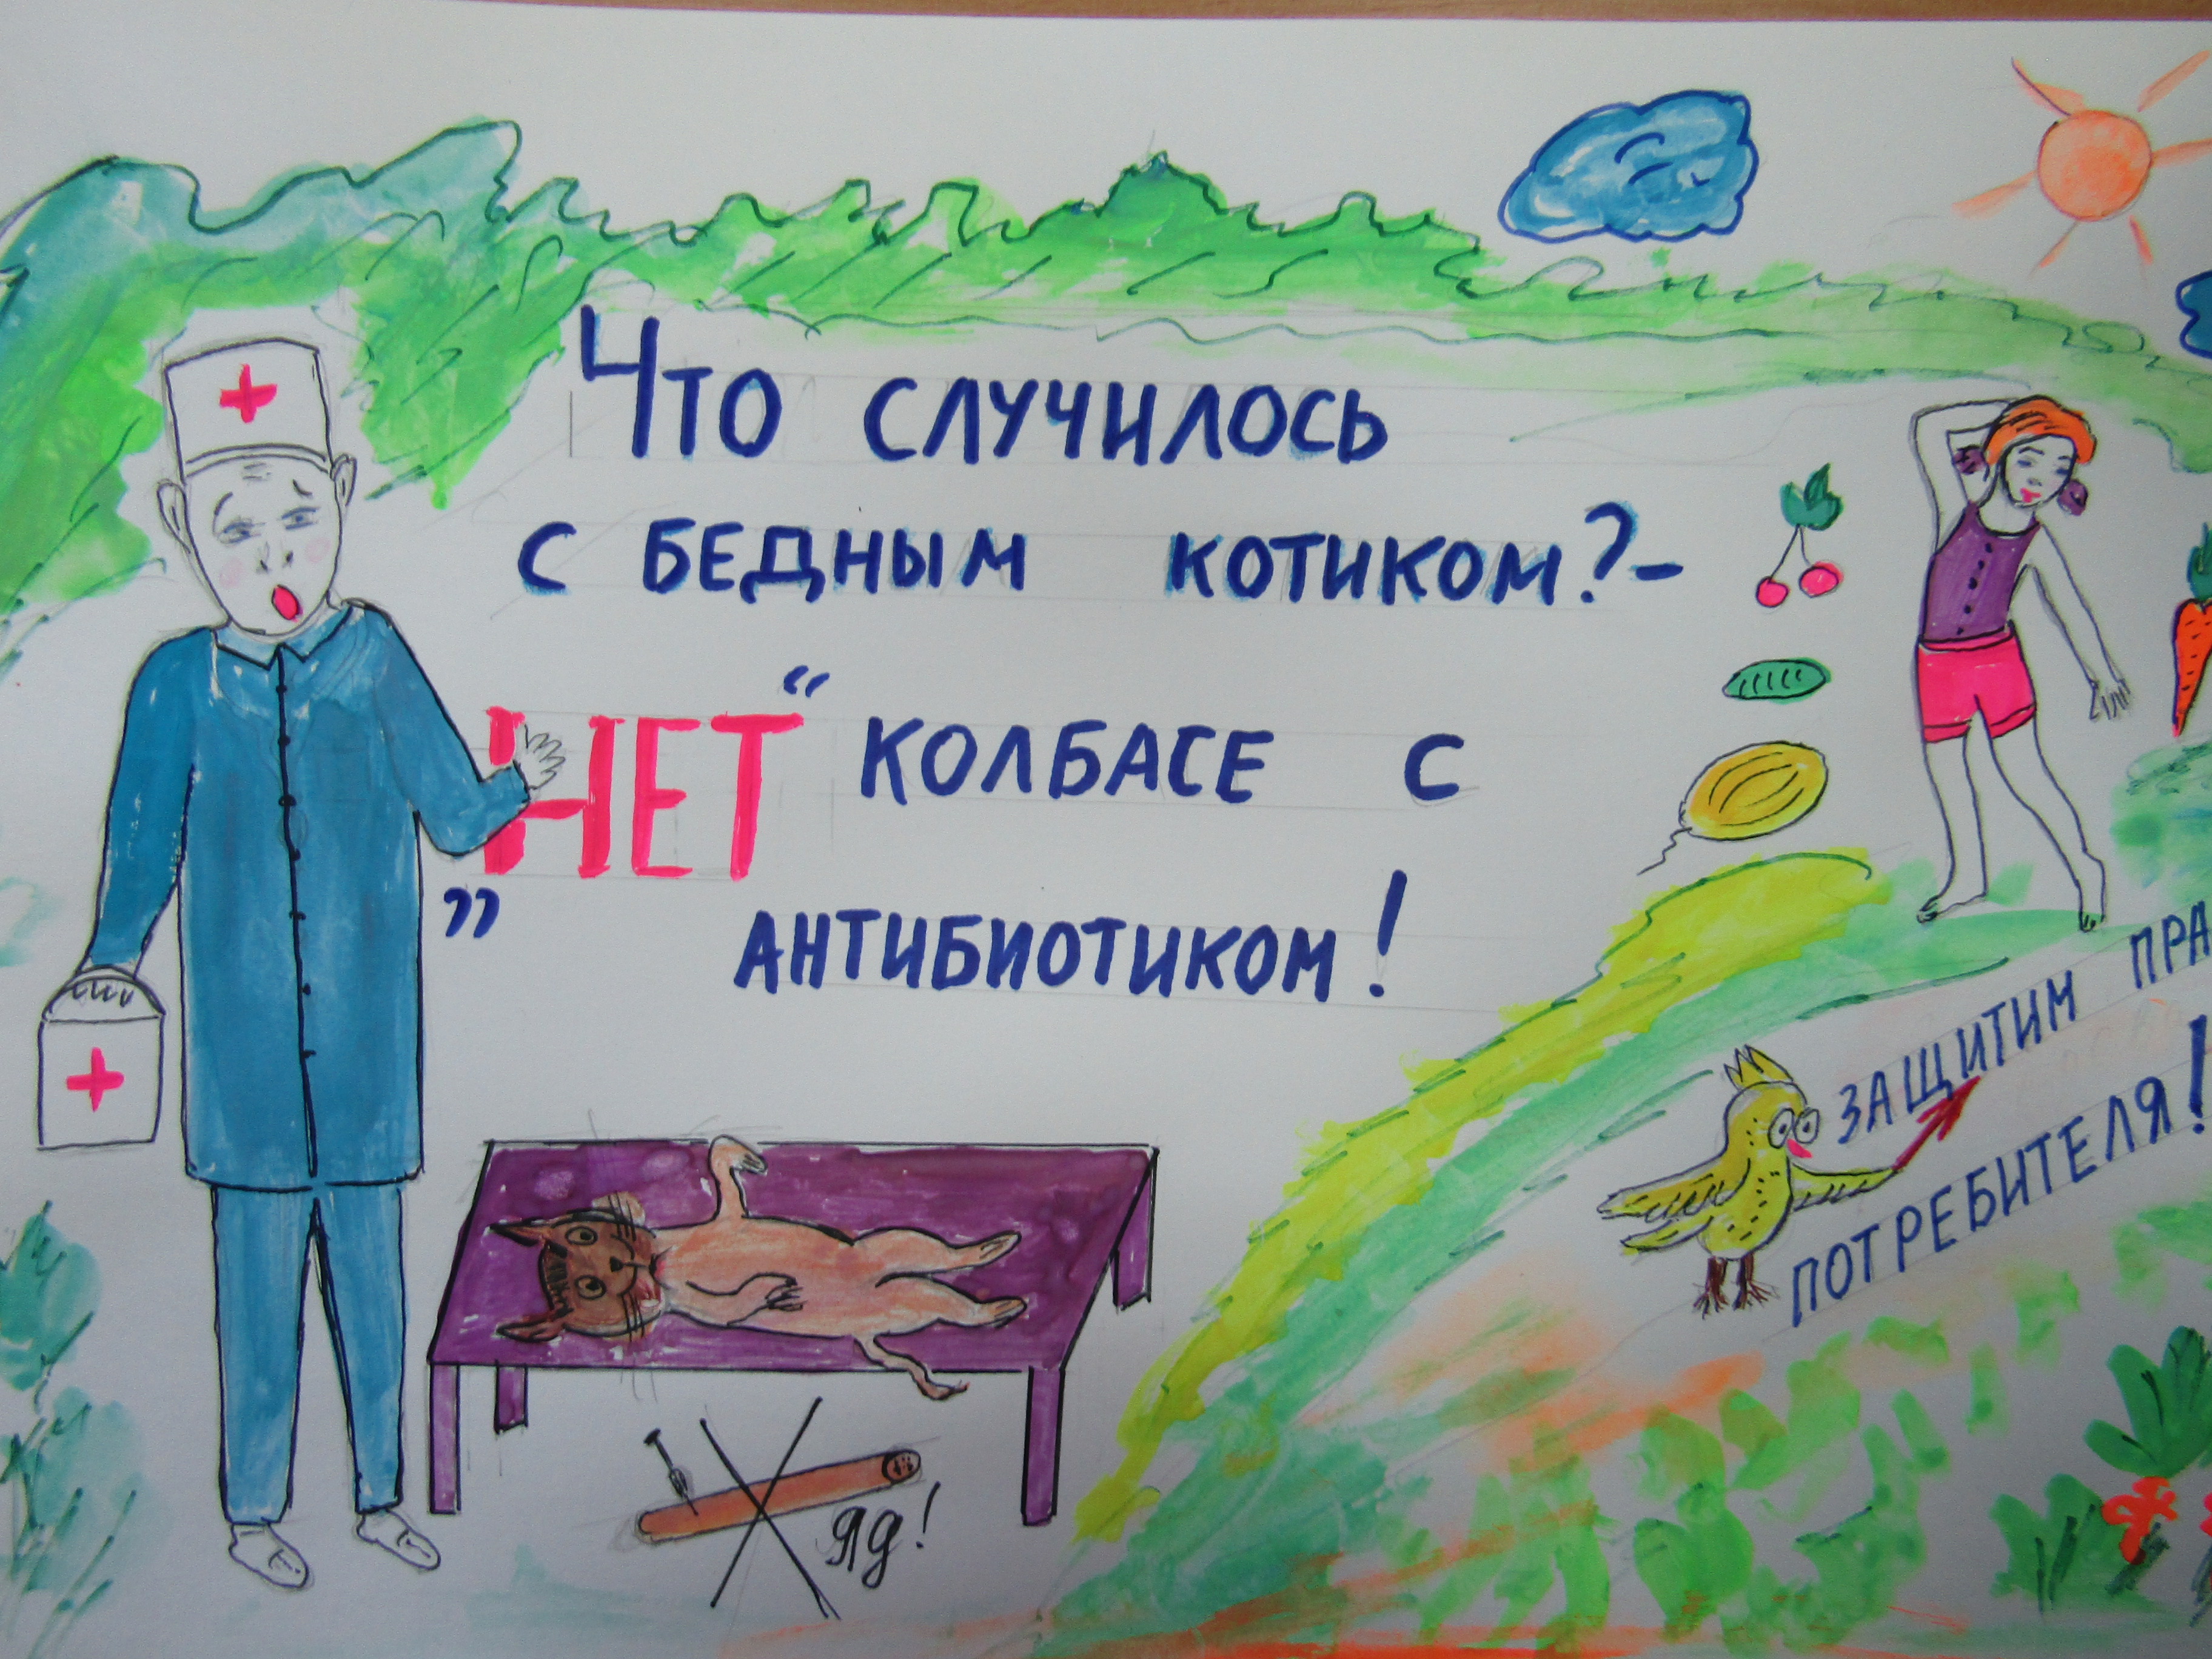 Что случилось
с бедным котиком?-
„НЕТ“ колбасе с
антибиотиком!
Защитим пра
потребителя!
Яд!